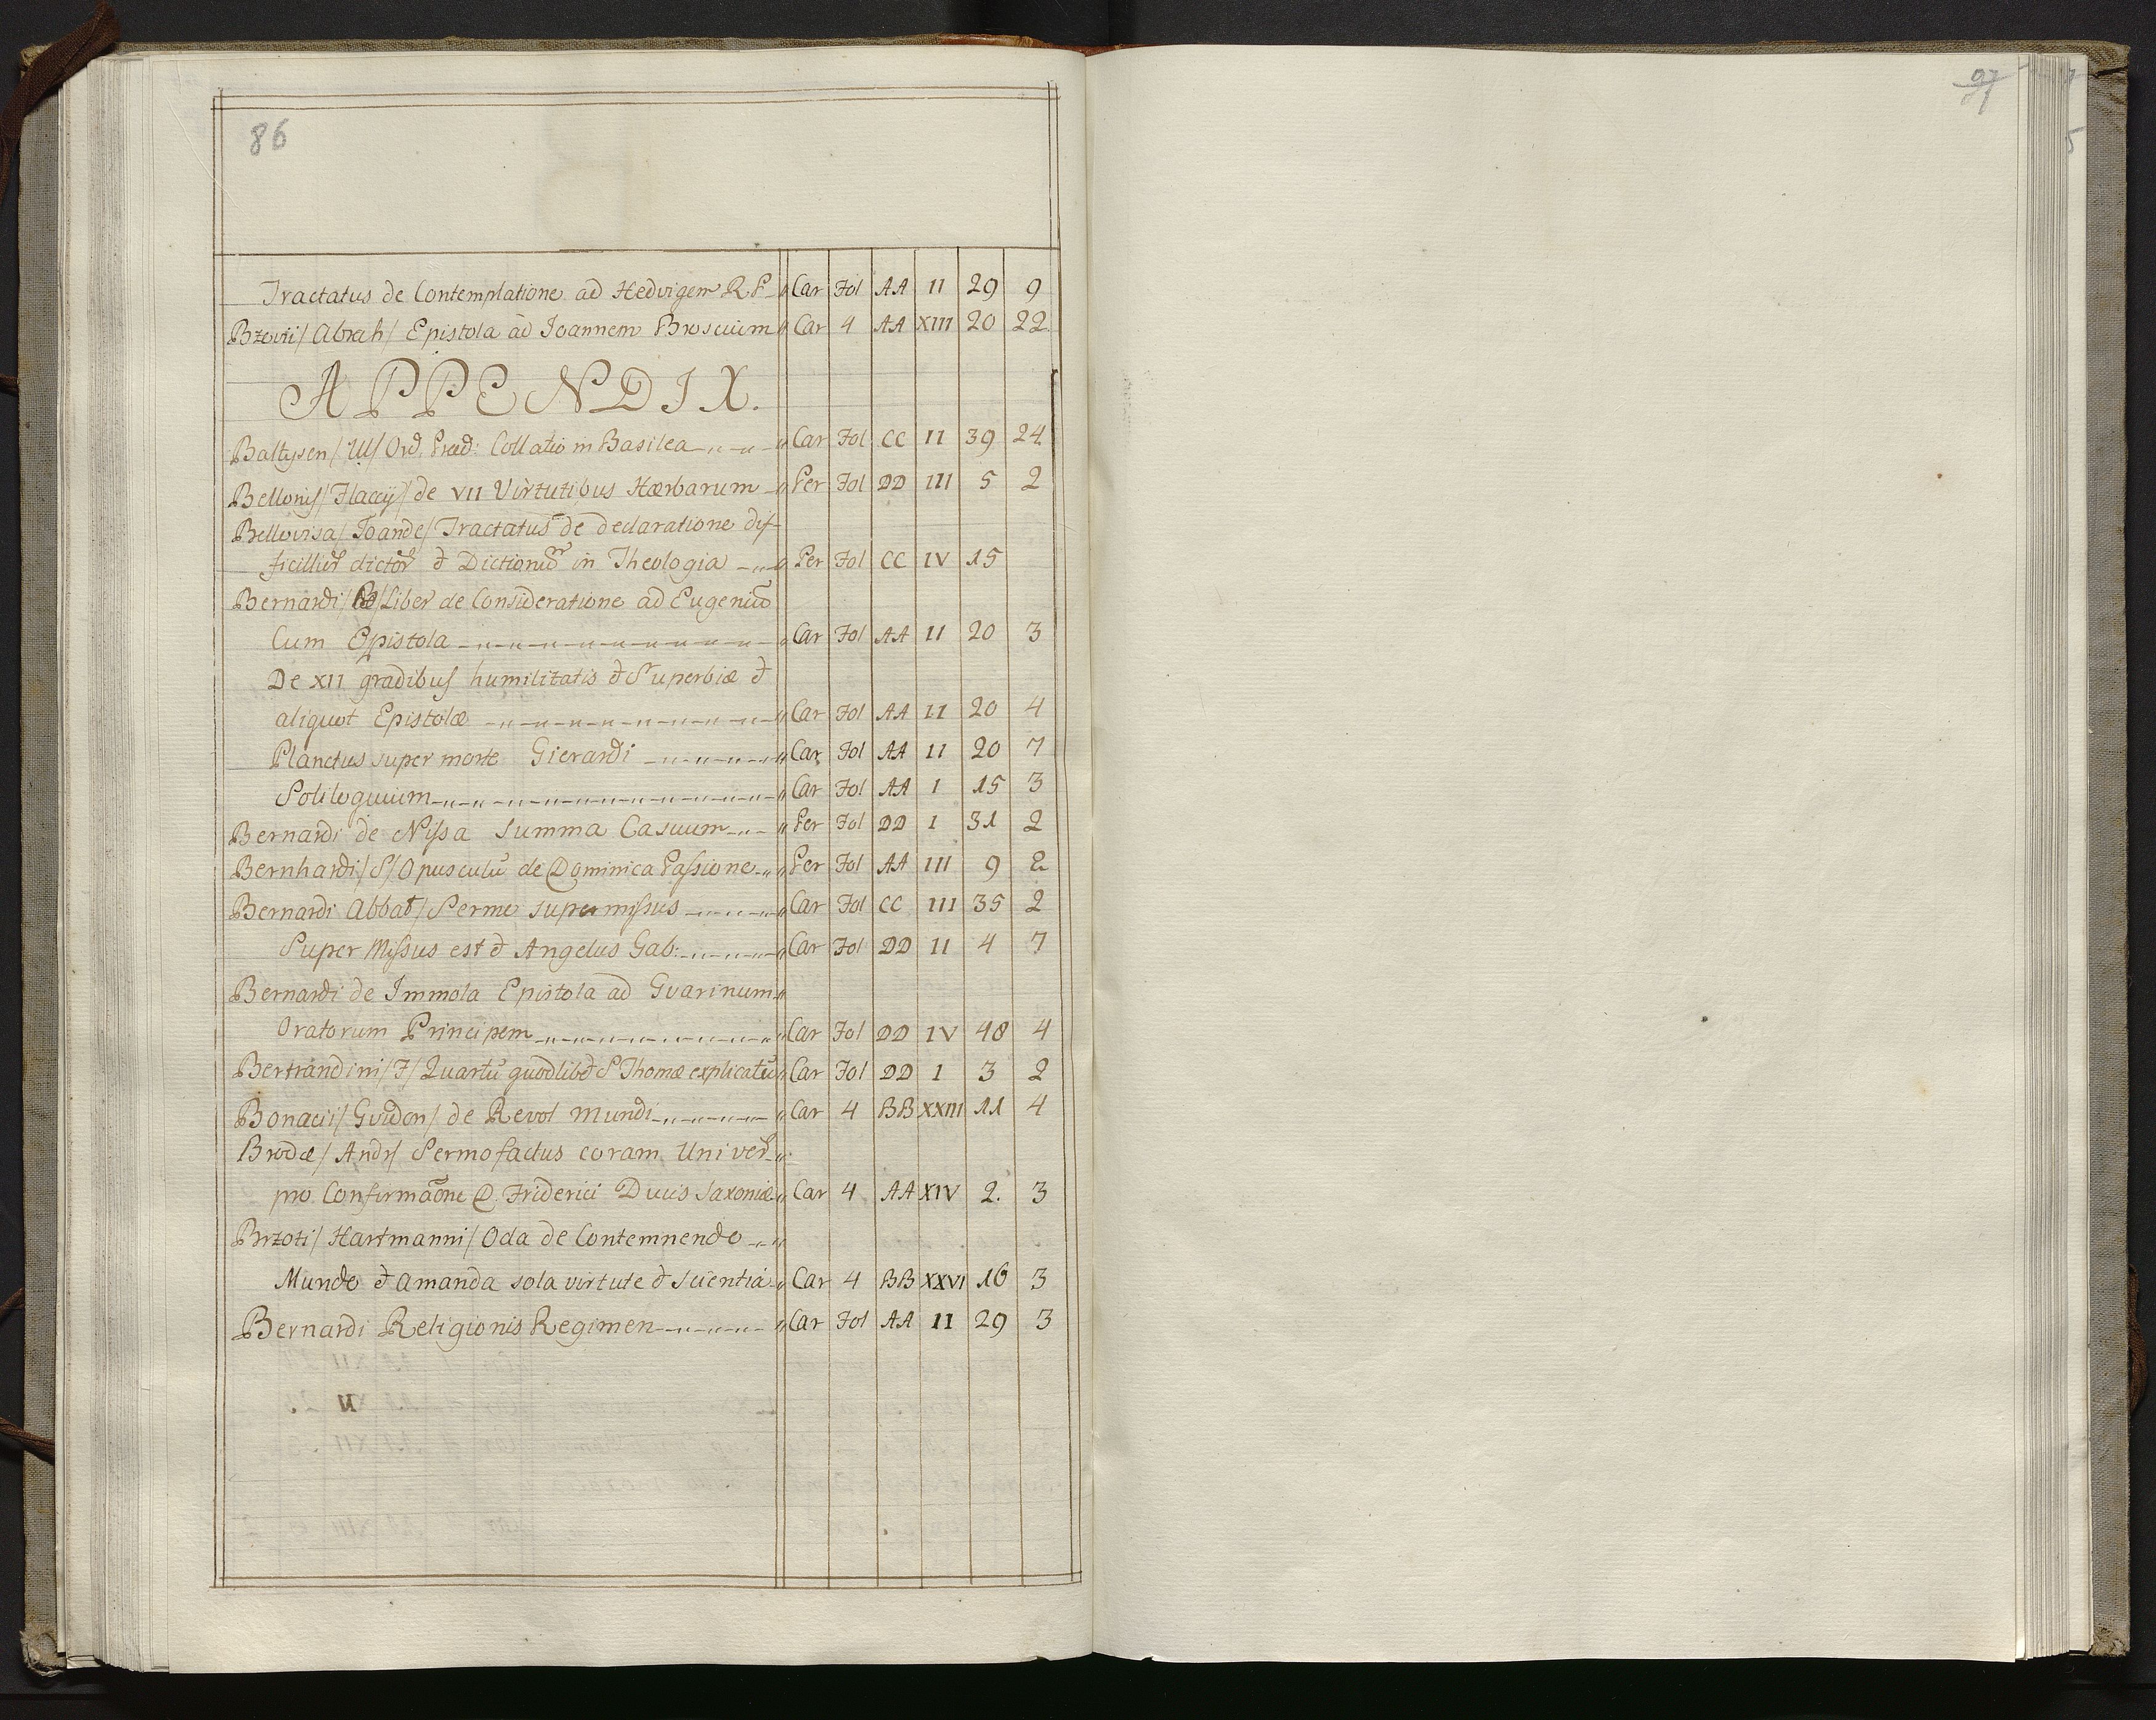 86
Tractatus de Contemplatione ad Hedvigem R P Car Fol AA II 29 9
Bzovii/ Abrah/ Epistola ad Joannem Broscium Car 4 AA XIII 20 22
APPENDIX.
Baltysen/ Ul/ Ord. Præd: Collatio in Basilea Car Fol CC II 39 24
Bellonis/ Flaccij/ de VII Virtutibus Hærbarum Per Fol DD III 5 2
Bellovisa/ Joan de/ Tractatus de declaratione dif-
ficilliũ dictoŕ & Dictionũ in Theologia Per Fol CC IV 15
Bernardi/ Liber de Consideratione ad Eugeniũ
Cum Epistola Car Fol AA II 20 3
De XII gradibus humilitatis & Superbiæ &
aliquot Epistolæ Car Fol AA II 20 4
Planctus super morte Gierardi Car Fol AA II 20 7
Soliloquium Car Fol AA I 15 3
Bernardi de Nissa Summa Casuum Per Fol DD I 31 2
Bernhardi/ S/ Opusculũ de Dominica Passione Per Fol AA III 9 2
Bernardi Abbat/ Sermo super missus Car Fol CC III 35 2
Super Missus est & Angelus Gab: Car Fol DD II 4 7
Bernardi de Immola Epistola ad Gvarinum
Oratorum Principem Car Fol DD IV 48 4
Bertrandini/ F/ Quartũ quodlibet S Thomæ explicatũ Car Fol DD I 3 2
Bonacii/ Gvidon/ de Revol mundi Car 4 BB XXIII 11 4
Brodæ/ Andr/ Sermo factus coram Univer
pro Confirmaõne D. Friderici Ducis Saxoniæ Car 4 AA XIV 2. 3
Brzoti/ Hartmanni/ Oda de Contemnendo
Mundo & amanda sola virtute & scientiá Car 4 BB XXVI 16 3
Bernardi Religionis Regimen Car Fol AA II 29 3